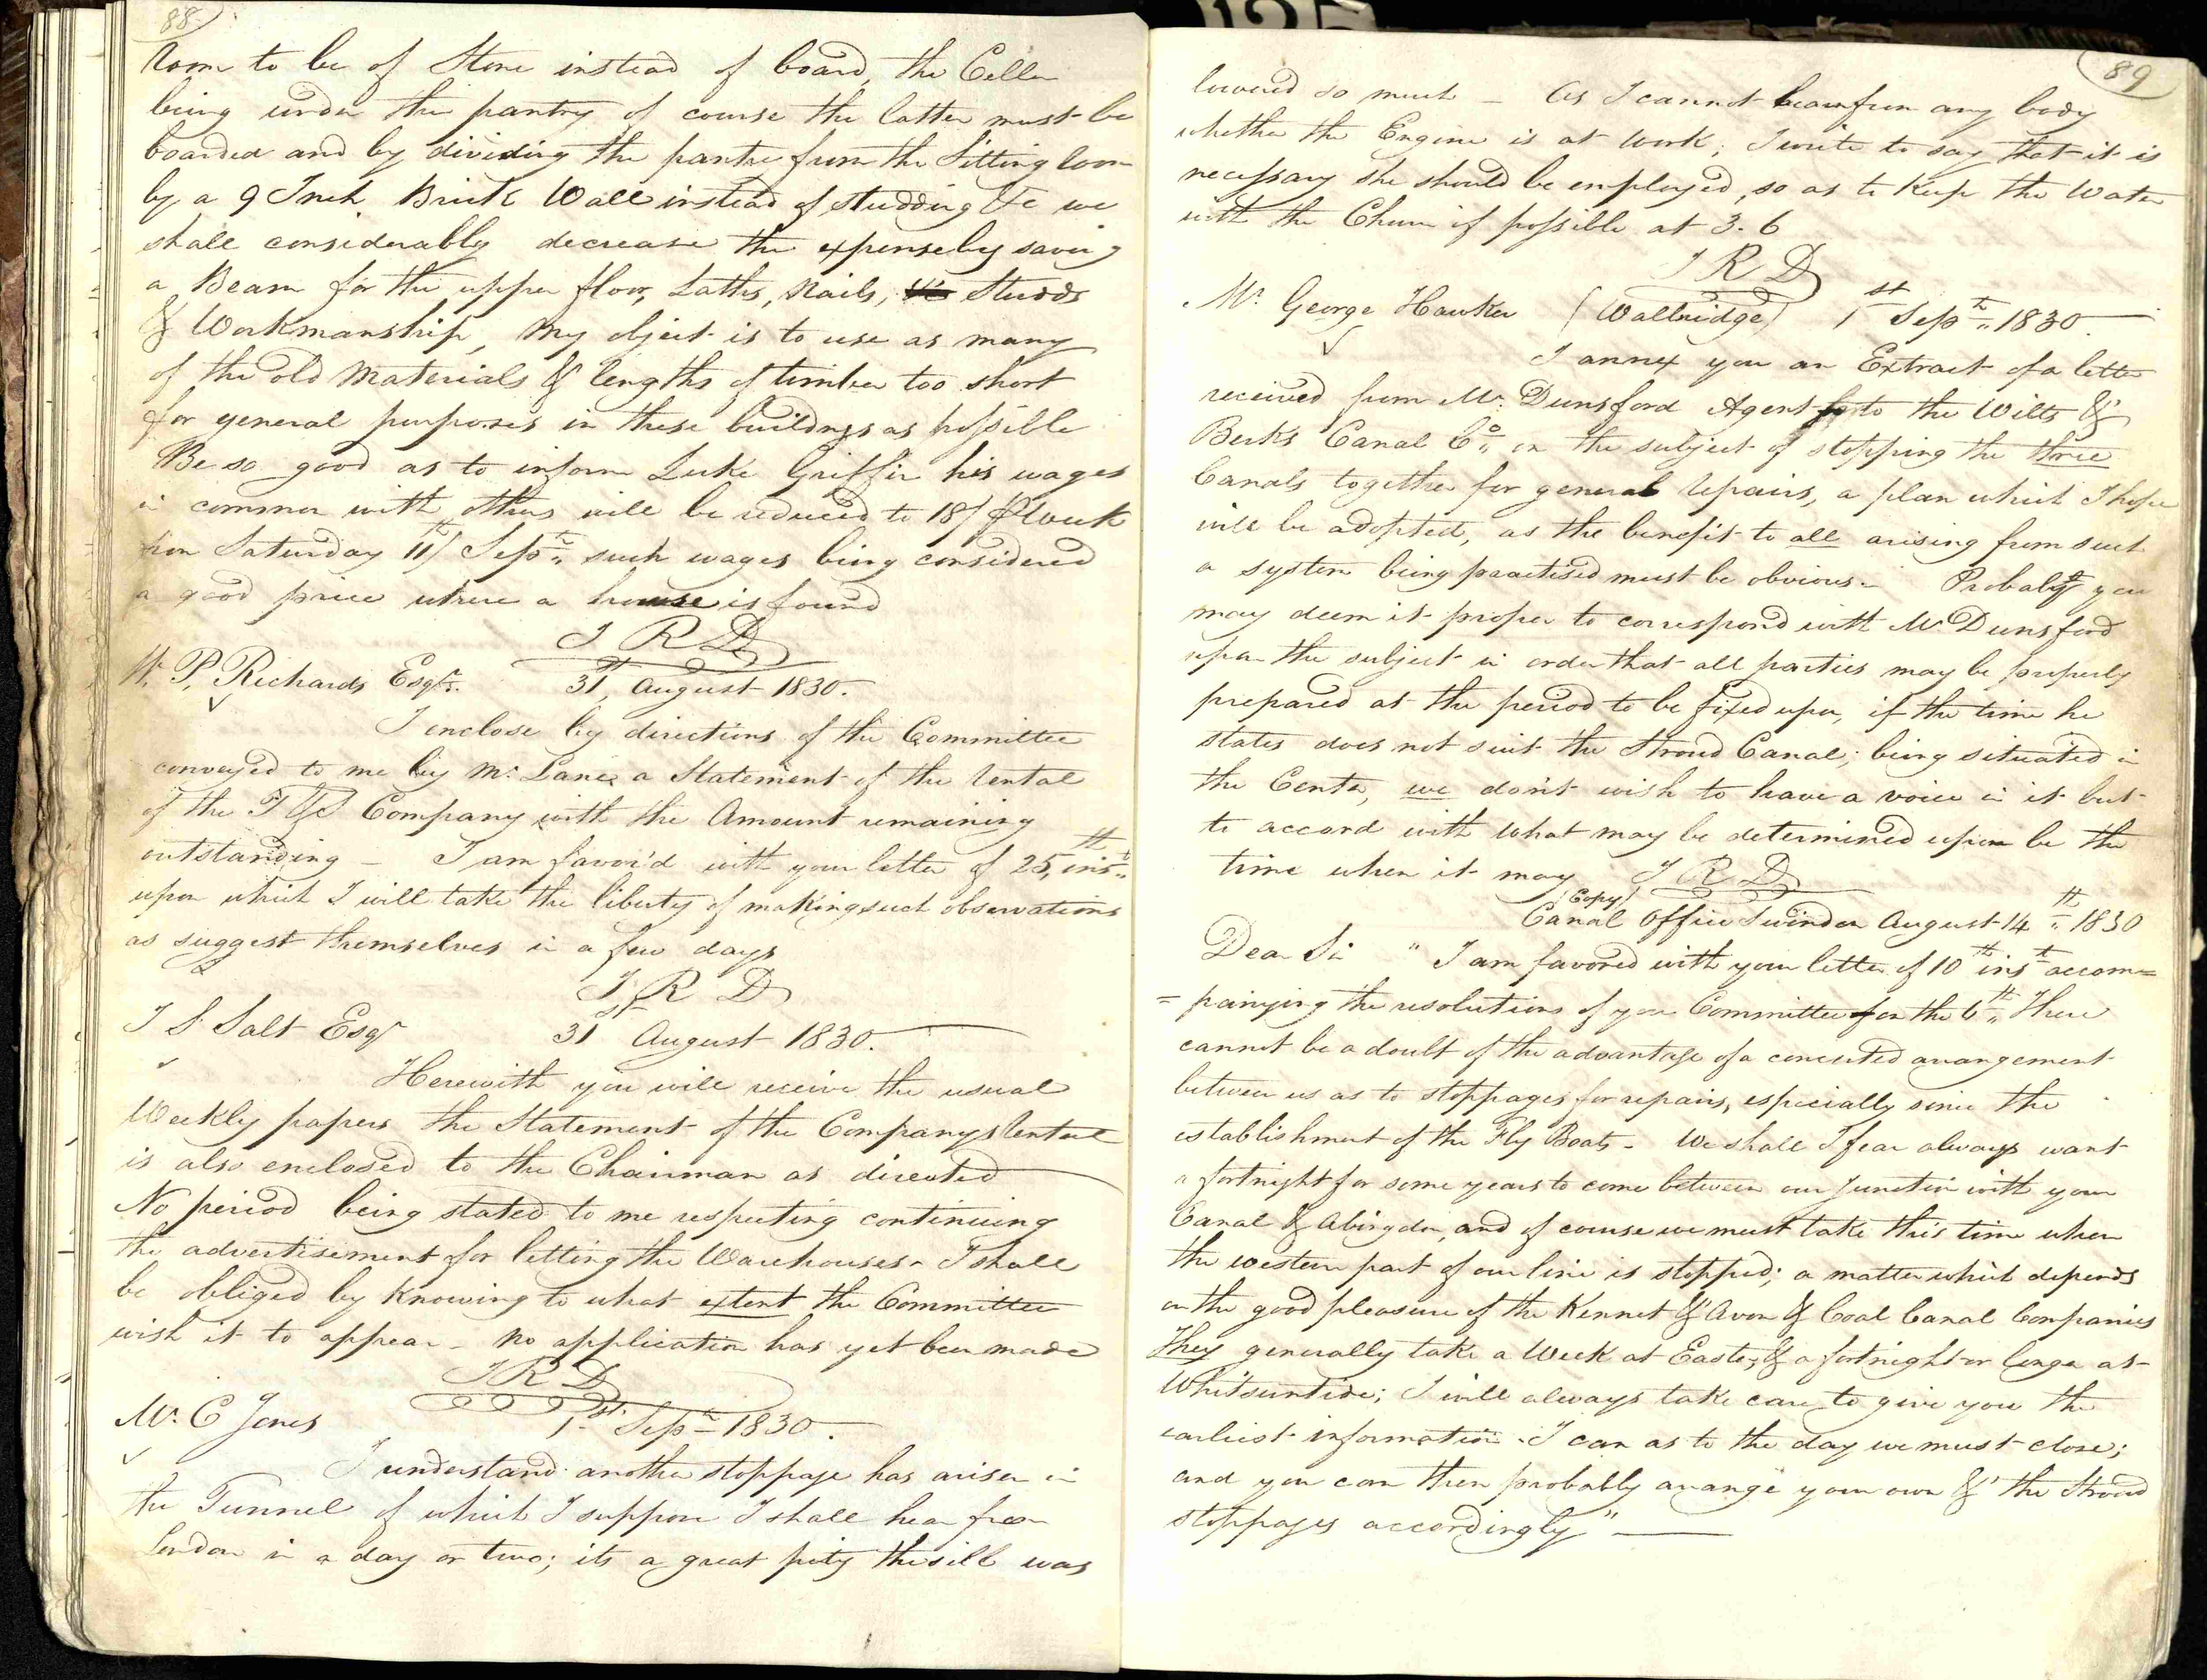 88
room to be of Stone instead of board, the Celler
being under the pantry of course the latter must be
boarded and by dividing the pantre from the Sitting room
by a 9 Inch Brick Wall instead of studding &c we
shall considerably decrease the expense by saving
a Beam for the upper floor, Laths, Nails, Studds
& Workmanship, My object is to use as many
of the old Materials & lengths of timber too short
for general purposes in these buildings as possible
Be so good as to inform Luke Griffin his wages
in common with others will be reduced to 18/ P Week
from Saturday 11th Sepr. such wages being considered
a good price where a house is found
J R D
W. P. Richards Esqr. 31st August 1830.
I enclose by directions of the Committee
conveyed to me by Mr. Lane a Statement of the rental
of the T & S Company with the Amount remaining
outstanding — I am favor'd with your letter of 25th inst.
upon which I will take the liberty of making such observations
as suggest themselves in a few days
J R D
J S Salt Esqr 31st August 1830.
Herewith you will receive the usual
Weekly papers the Statement of the Companys rental
is also enclosed to the Chairman as directed
No period being stated to me respecting continuing
the advertisement for letting the Warehouses - I shall
be obliged by knowing to what extent the Committee
wish it to appear - no application has yet been made
J R D
Mr. C Jones 1st Sepr 1830.
I understand another stoppage has arisen in
the Tunnel of which I suppose I shall hear from
London in a day or two; its a great pity the sill was
89
lowered so much — As I cannot learn from any body
whether the Engine is at work, I write to say that it is
necessary she should be employed, so as to keep the Water
with the Chum if possible at 3.6
J R D
Mr. George Hawker (Wallbridge) 1st Sepr. 1830.
I annex you an Extract of a letter
received from Mr. Dunsford Agent to the Wilts &
Berks Canal Co. on the subject of stopping the three
Canals together for general repairs, a plan which I hope
will be adopted, as the benefit to all arising from such
a system being practised must be obvious - Probably you
may deem it proper to correspond with Mr Dunsford
upon the subject in order that all parties may be properly
prepared at the period to be fixed upon, if the time he
states does not suit the Stroud Canal; being situated in
the Center, we don't wish to have a voice in it but
to accord with what may be determined upon be the
time when it may J R D
(Copy)
Canal Office Swindon August 14th 1830
Dear Sir "I am favored with your letter of 10th inst accom=
=panying the resolutions of your Committee on the 6th. There
cannot be a doubt of the advantage of a concerted arrangement
between us as to stoppages for repairs, especially since the
establishment of the Fly Boats - We shall I fear always want
a fortnight for some years to come between our junction with your
Canal & Abingdon, and of course we must take this time when
the western part of our line is stopped; a matter which depends
on the good pleasure of the Kennet & Avon & Coal Canal Companies
They generally take a Week at Easter, & a fortnight or longer at
Whitsuntide; I will always take care to give you the
earliest information I can as to the day we must close;
and you can then probably arrange your own & the Stroud
stoppages accordingly"